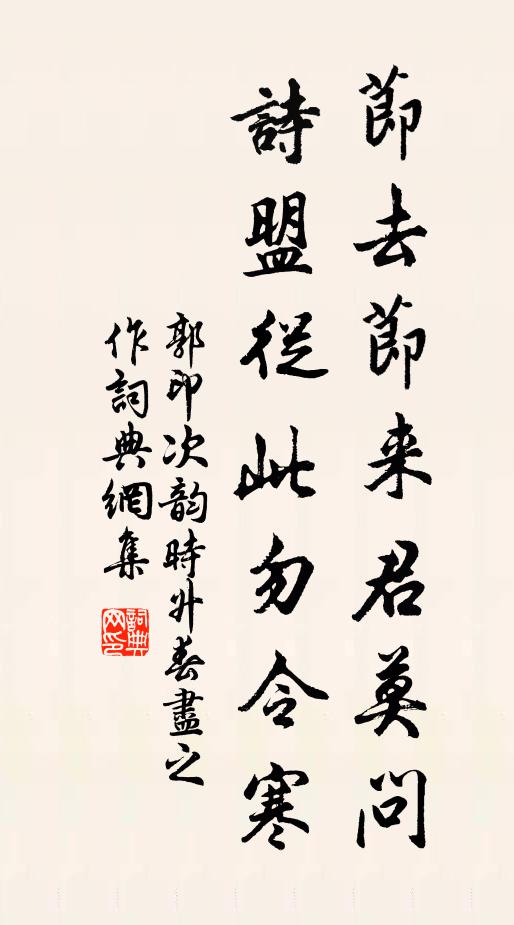 節去節来君莫問
詩盟從此勿令寒
郭印次韵時升春盡之
作詞典網集
詞典
网印